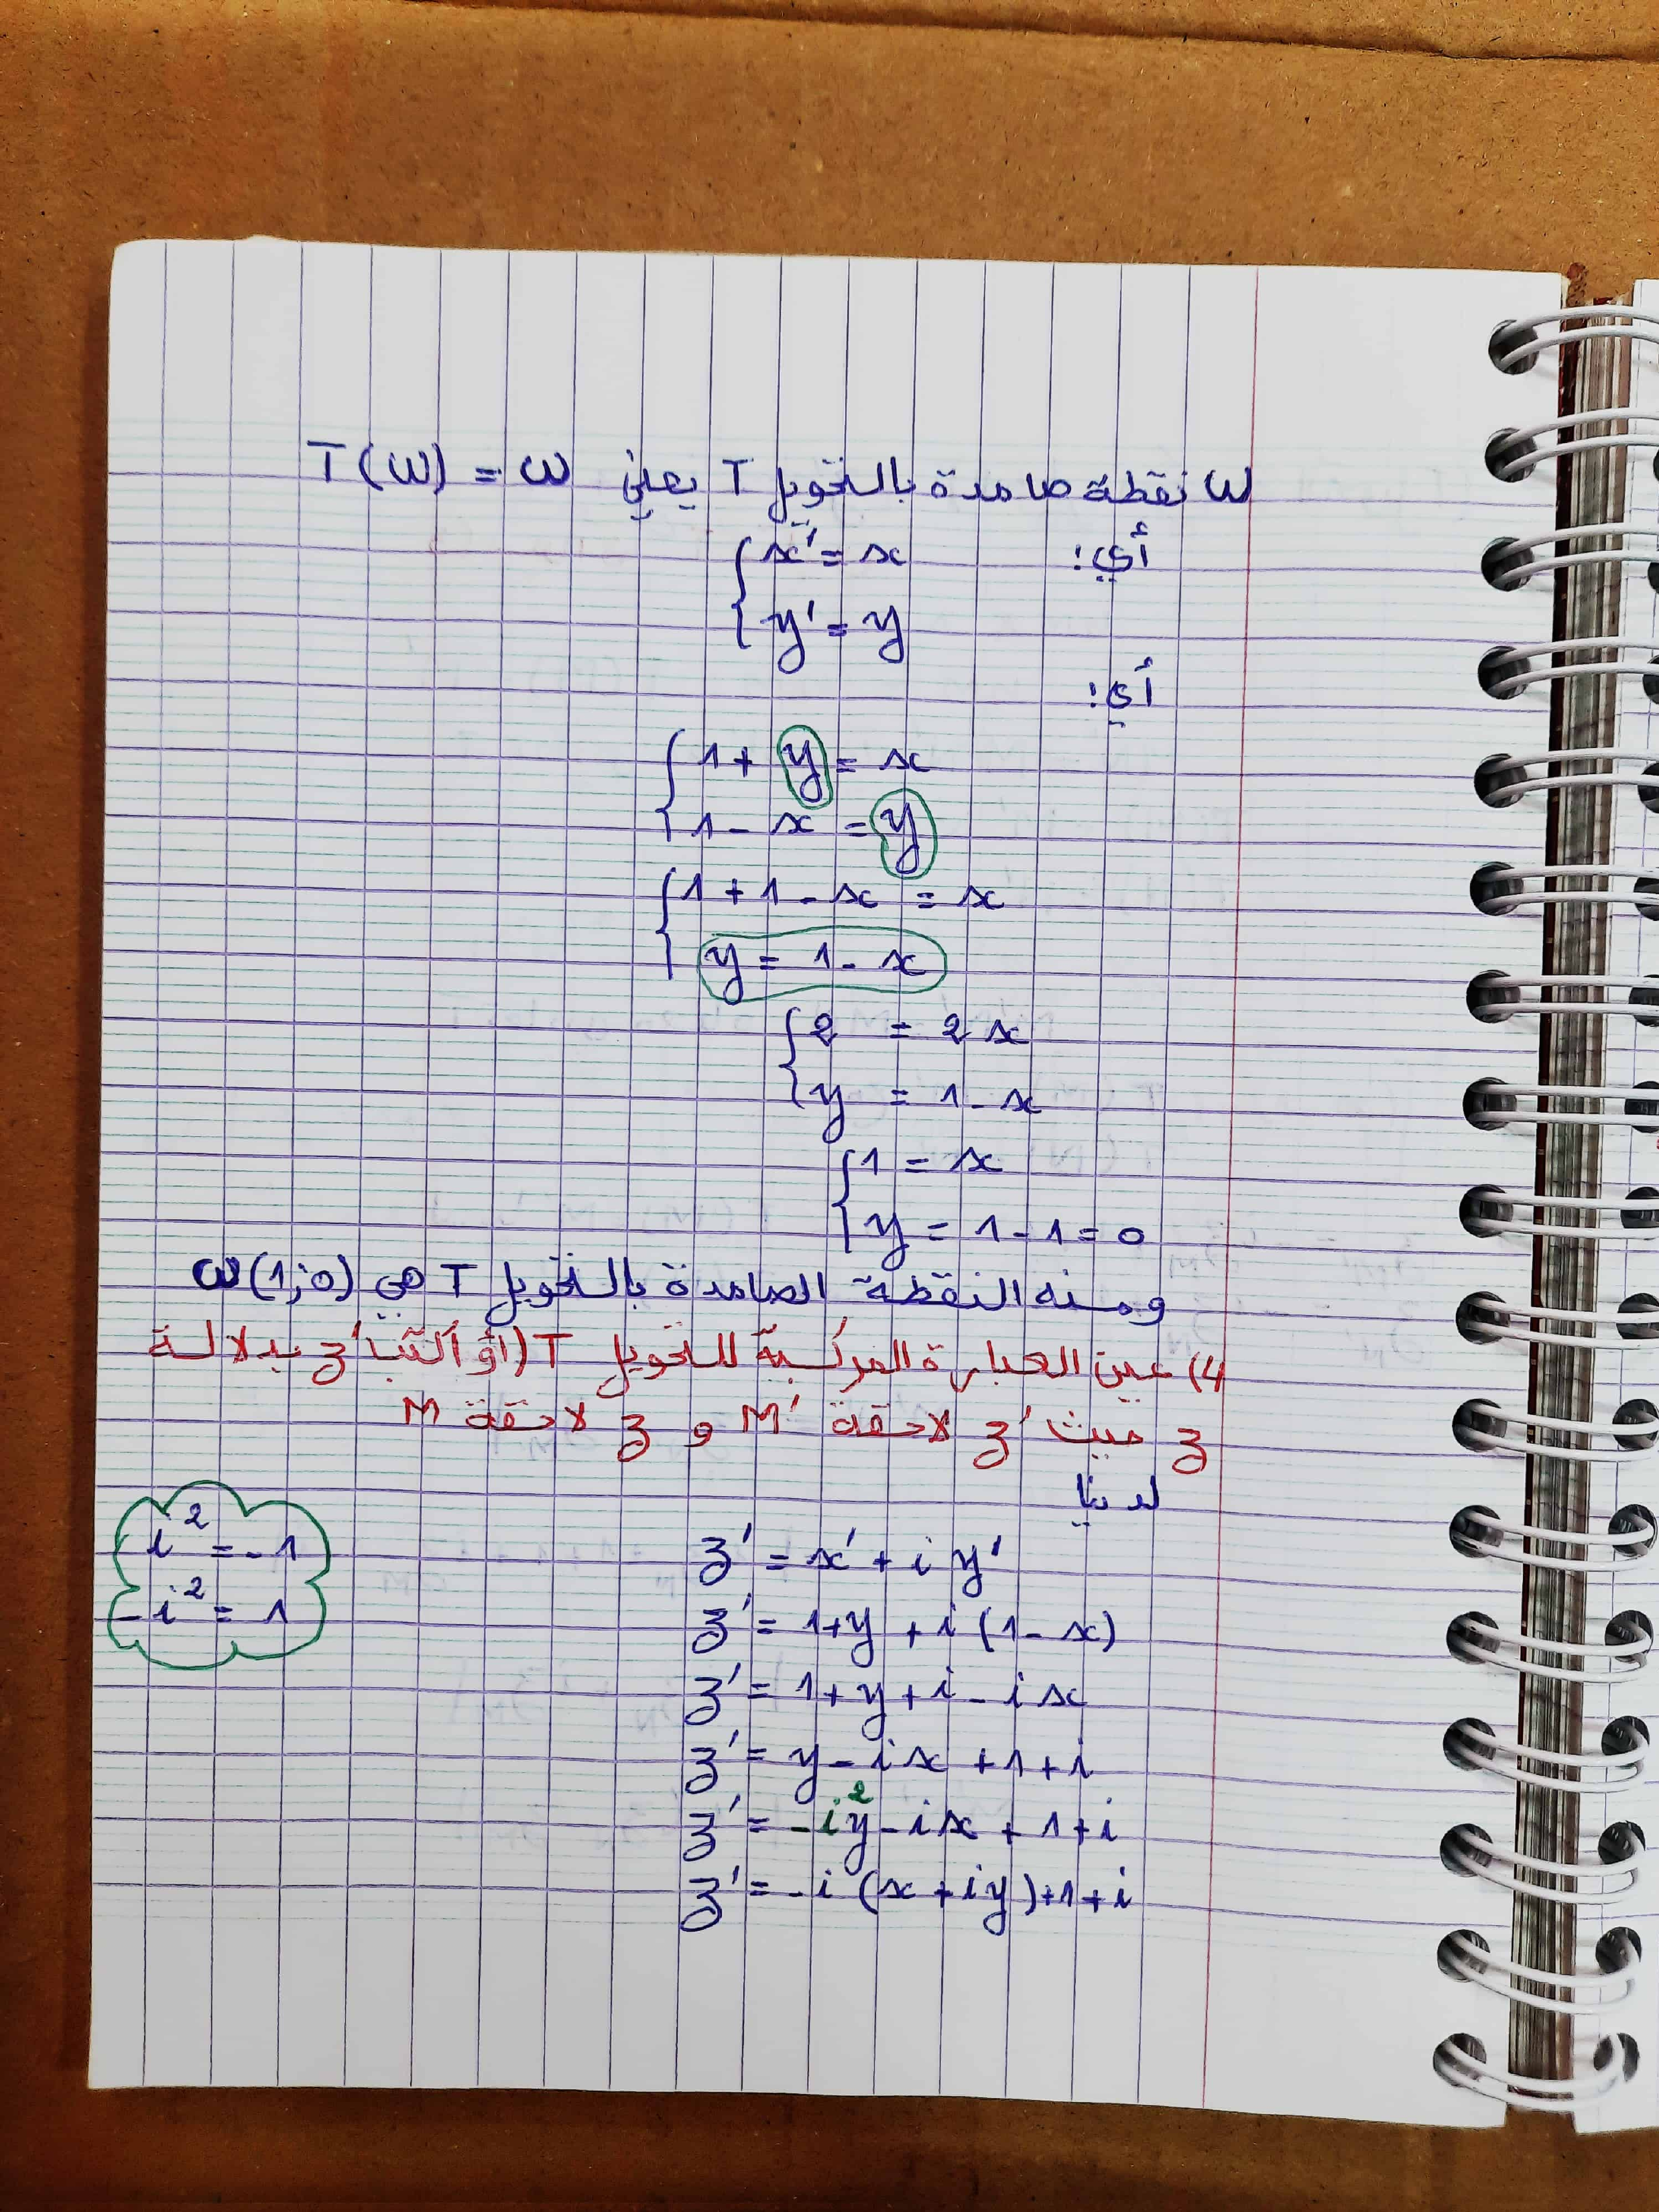 ω نقطة صامدة بالتحويل T يعني T(ω) = ω
أي:
{ x' = x
y' = y
أي:
{ 1 + y = x
1 - x = y
{ 1 + 1 - x = x
y = 1 - x
{ 2 = 2x
y = 1 - x
{ 1 = x
y = 1 - 1 = 0
ومنه النقطة الصامدة بالتحويل T هي ω(1;0)
4) عين العبارة المركبة للتحويل T (أو أكتب z' بدلالة
z حيث z' لاحقة M' و z لاحقة M
لدينا
z' = x' + i y'
i² = -1
z' = 1+y + i(1-x)
-i² = 1
z' = 1+y+i-ix
z' = y-ix+1+i
z' = -i²y-ix+1+i
z' = -i(x+iy)+1+i